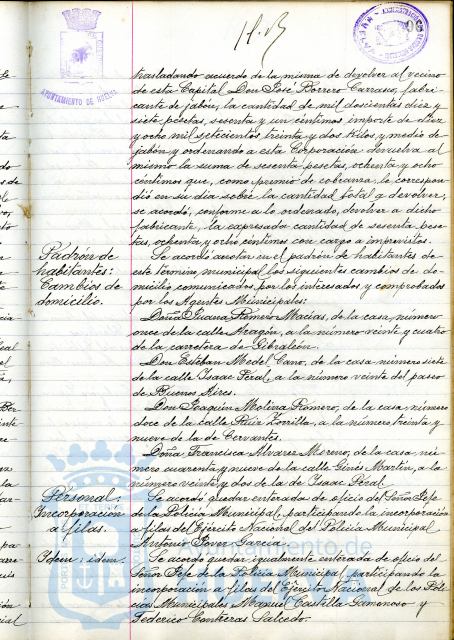 AYUNTAMIENTO DE HUELVA
trasladando acuerdo de la misma de devolver al vecino
de esta Capital Don José Borrero Carrasco, fabri-
cante de jabón, la cantidad de mil doscientas diez y
siete pesetas, sesenta y un céntimos importe de diez
y ocho mil setecientos treinta y dos kilos, y medio de
jabón y ordenando a esta Corporación devuelva al
mismo la suma de sesenta pesetas, ochenta y ocho
céntimos que, como premio de cobranza, le correspon-
dió en su día sobre la cantidad total a devolver,
se acordó, conforme a lo ordenado, devolver a dicho
fabricante, la expresada cantidad de sesenta pese-
tas, ochenta y ocho céntimos con cargo a imprevistos.
Padrón de
habitantes:
Cambios de
domicilio.
Se acordó anotar en el padrón de habitantes de
este Término municipal los siguientes cambios de do-
micilio comunicados por los interesados y comprobados
por los Agentes Municipales:
Doña Juana Romero Macías, de la casa número
once de la calle Aragón, a la número veinte y cuatro
de la carretera de Gibraleón.
Don Esteban Medel Cano, de la casa número siete
de la calle Isaac Peral, a la número veinte del paseo
de Buenos Aires.
Don Joaquín Molina Romero, de la casa, número
doce de la calle Ruiz Zorrilla, a la número treinta y
nueve de la de Cervantes.
Doña Francisca Alvarez Moreno, de la casa nú-
mero cuarenta y nueve de la calle Ginés Martín, a la
número veinte y dos de la de Isaac Peral.
Personal:
Incorporación
a filas.
Se acordó quedar enterada de oficio del Señor Jefe
de la Policía Municipal, participando la incorporación
a filas del Ejército Nacional del Policía Municipal
Antonio Tover García.
Idem: idem.
Se acordó quedar igualmente enterada de oficio del
Señor Jefe de la Policía Municipal participando la
incorporación a filas del Ejército Nacional de los Poli-
cías Municipales Manuel Castilla Gamonoso y
Federico Contreras Salcedo.
Ayuntamiento de